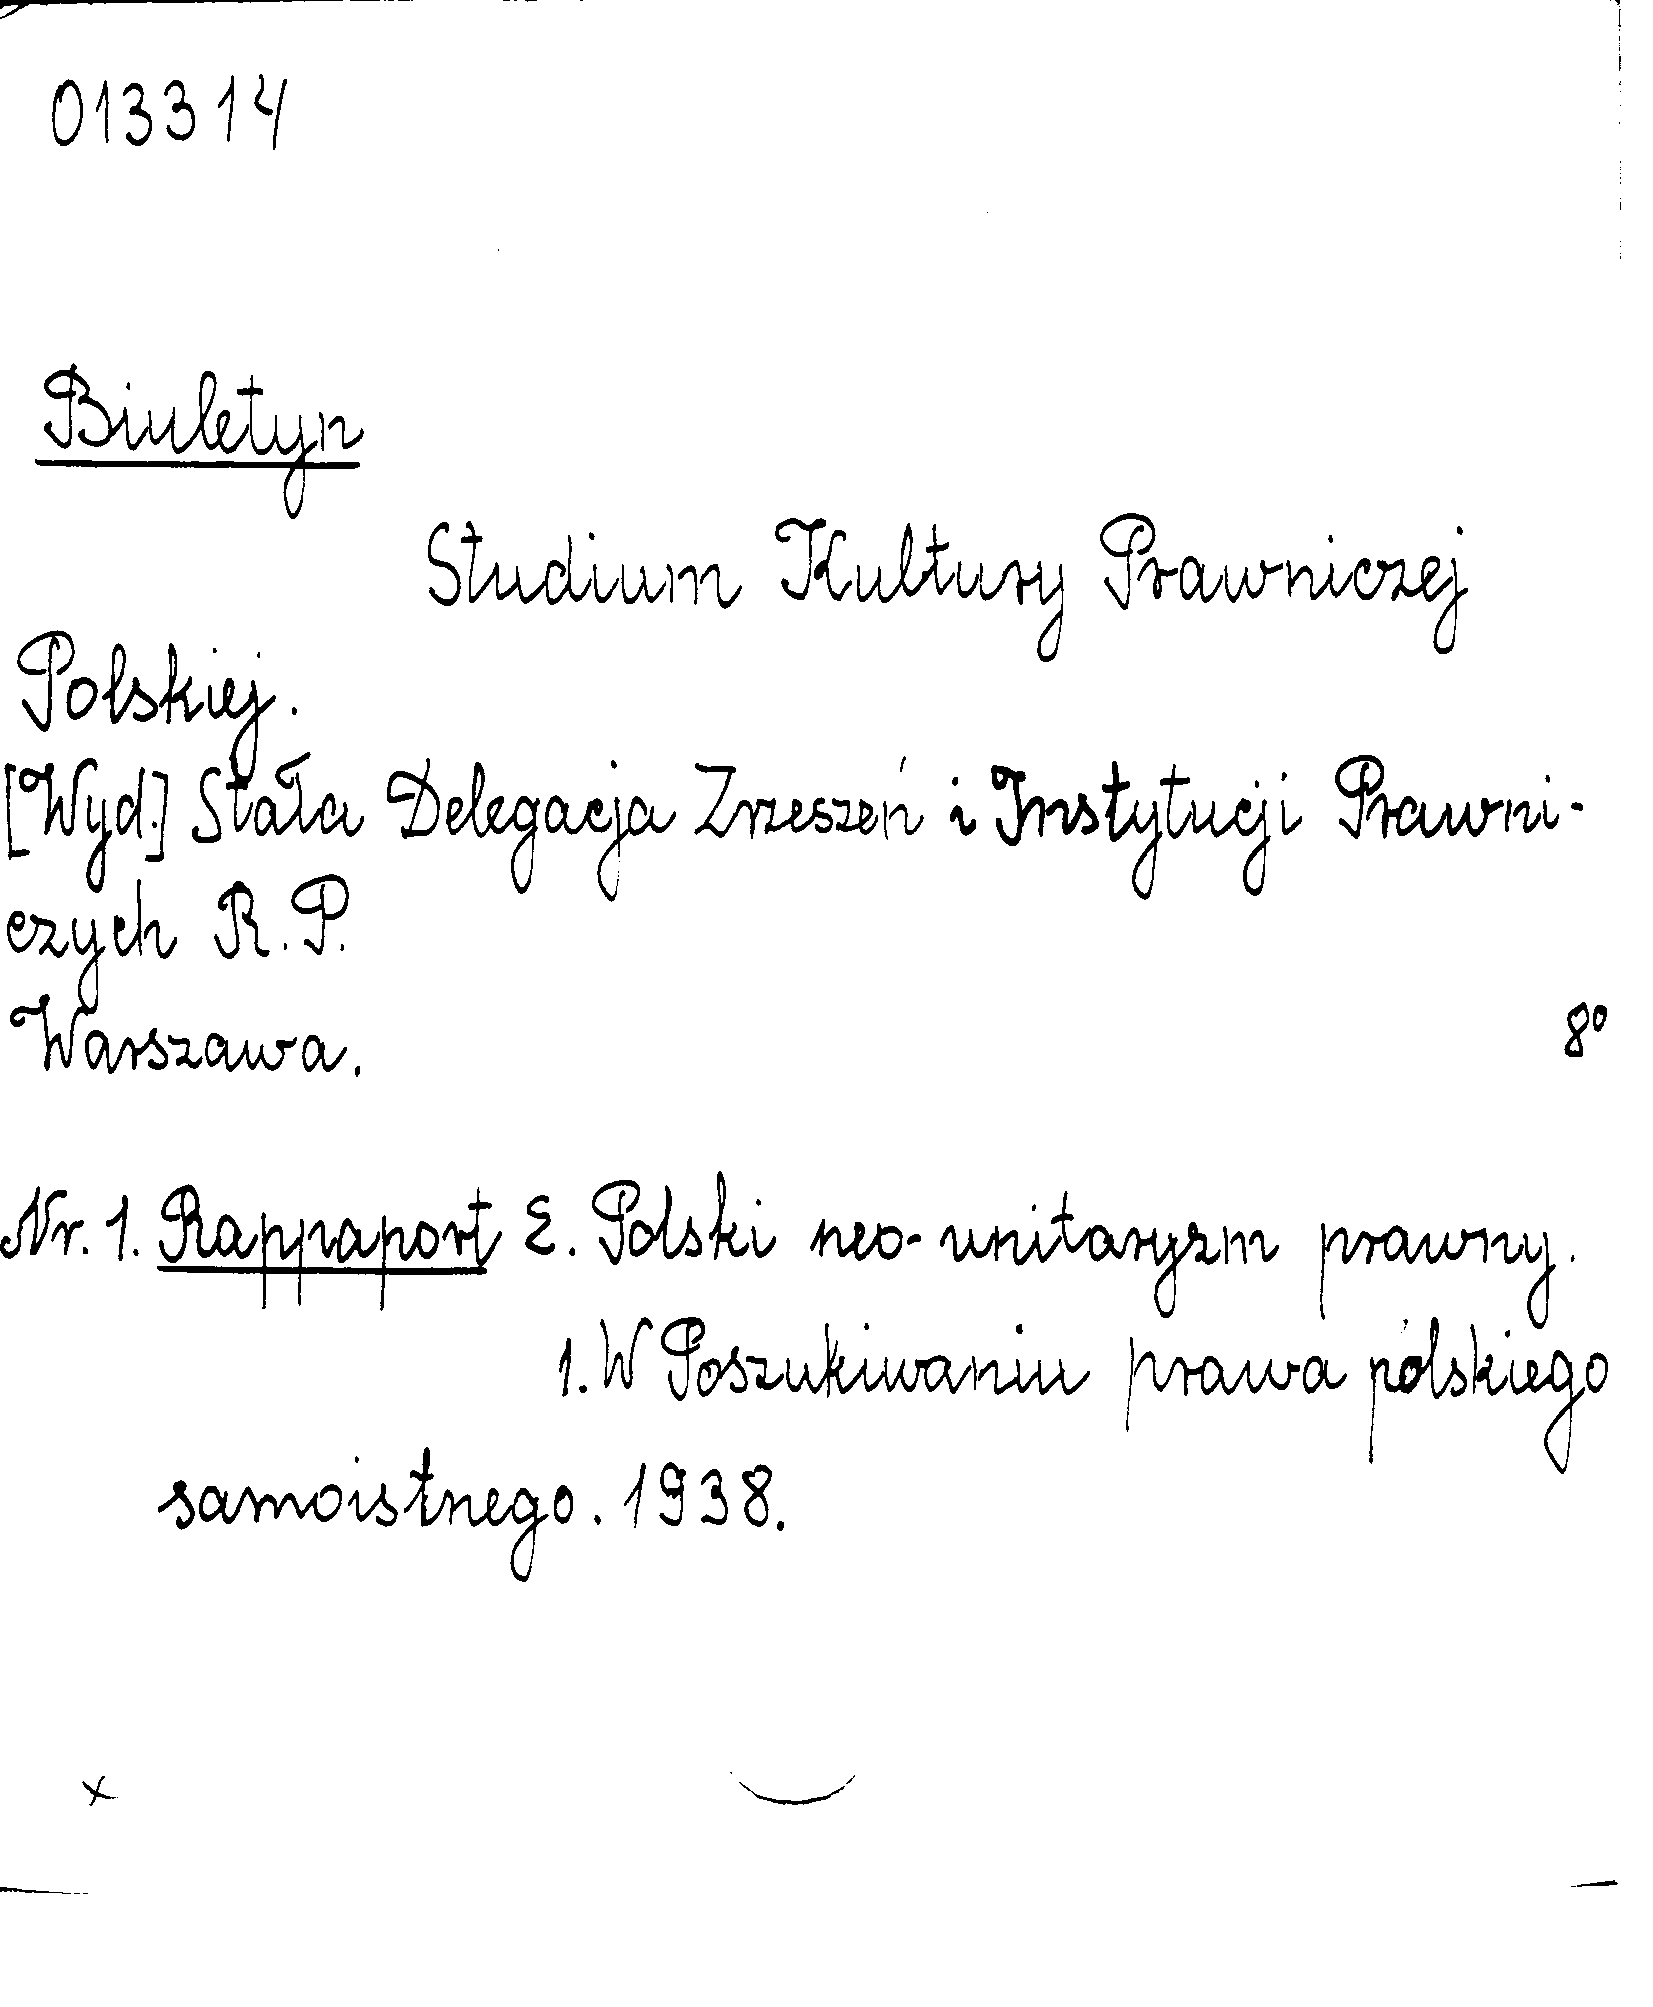 013314
Biuletyn
Studium Kultury Prawniczej
Polskiej.
[Wyd.] Stała Delegacja Zrzeszeń i Instytucji Prawni-
czych R.P.
Warszawa. 8°
Nr. 1. Rappaport E. Polski neo-unitaryzm prawny.
1. W Poszukiwaniu prawa polskiego
samoistnego. 1938.
x